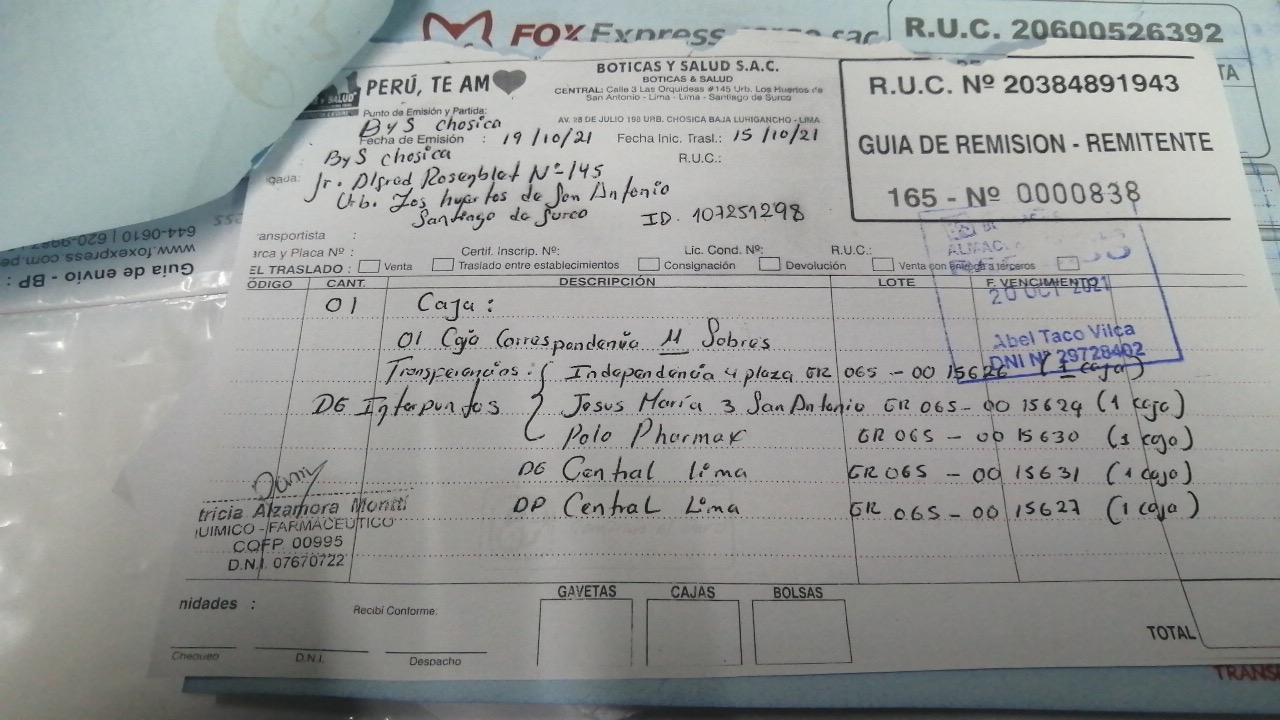 FOX Express
R.U.C. 20600526392
PERÚ, TE AM
BOTICAS Y SALUD S.A.C.
BOTICAS & SALUD
CENTRAL: Calle 3 Las Orquideas #145 Urb. Los Huertos de
San Antonio - Lima - Lima - Santiago de Surco
AV. 28 DE JULIO 198 URB. CHOSICA BAJA LURIGANCHO - LIMA
R.U.C. Nº 20384891943
GUIA DE REMISION - REMITENTE
165 - Nº 0000838
Punto de Emisión y Partida:
ByS chosica
Fecha de Emisión : 19/10/21 Fecha Inic. Trasl.: 15/10/21
ByS chosica R.U.C.:
Jr. Alfred Rosenblat Nº 145
Urb. Los huertos de San Antonio
Santiago de Surco ID. 107251298
ansportista :
arca y Placa Nº : Certif. Inscrip. Nº: Lic. Cond. Nº: R.U.C.:
EL TRASLADO : Venta Traslado entre establecimientos Consignación Devolución Venta con entrega a terceros
ÓDIGO CANT. DESCRIPCIÓN LOTE F. VENCIMIENTO
20 OCT 2021
Abel Taco Vilca
DNI Nº 29728402
01 Caja :
01 Caja Correspondencia 11 Sobres
Transferencias : Independencia 4 plaza GR 065 - 00 15626 (1 caja)
DG Interpuntos Jesus María 3 San Antonio GR 065 - 00 15629 (1 caja)
Polo Pharmax GR 065 - 00 15630 (1 caja)
DG Central Lima GR 065 - 00 15631 (1 caja)
DP Central Lima GR 065 - 00 15627 (1 caja)
tricia Alzamora
UIMICO - FARMACEUTICO
CQFP. 00995
D.N.I. 07670722
nidades : Recibí Conforme:
GAVETAS CAJAS BOLSAS
TOTAL
Chequeo D.N.I. Despacho
Guía de envío - BP :
www.foxexpress.com.pe